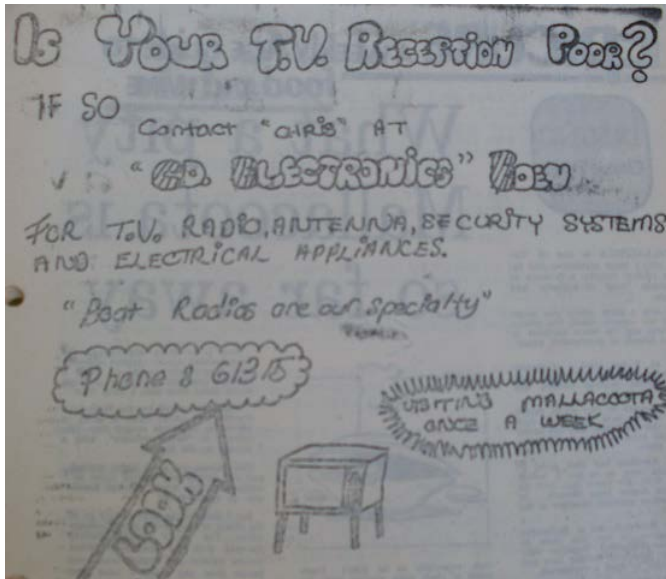 Is Your T.V. Reception Poor?
IF SO
Contact "CHRIS" AT
"C.D. ELECTRONICS" EDEN
FOR T.V. RADIO, ANTENNA, SECURITY SYSTEMS
AND ELECTRICAL APPLIANCES.
"Boat Radios are our specialty"
Phone 8 61315
VISITING MALLACOOTA
ONCE A WEEK
LOOK
What a pity
Mallacoota is
so far away